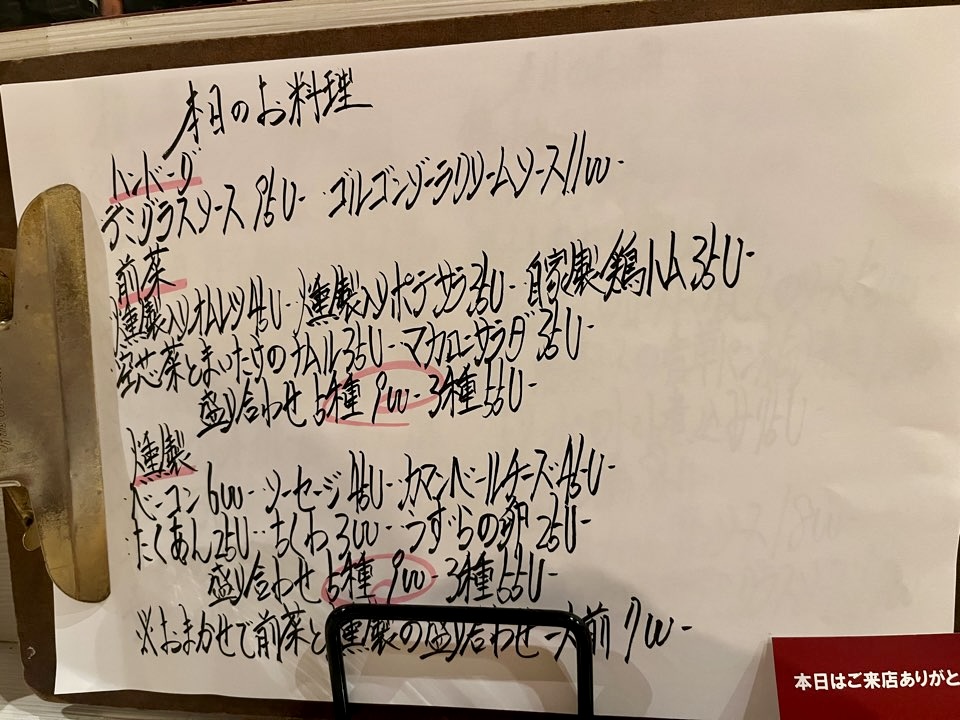 本日のお料理
ハンバーグ
デミグラスソース 950- ゴルゴンゾーラクリームソース 1100-
前菜
燻製入りオムレツ 450- 燻製入りポテサラ 350- 自家製鶏ハム 350-
空芯菜とまいたけのナムル 350- マカロニサラダ 350-
盛り合わせ 5種 900- 3種 550-
燻製
ベーコン 600- ソーセージ 450- カマンベールチーズ 450-
たくあん 250- ちくわ 300- うずらの卵 250-
盛り合わせ 5種 900- 3種 650-
※おまかせで前菜と燻製の盛り合わせ 一人前 700-
本日はご来店ありがと